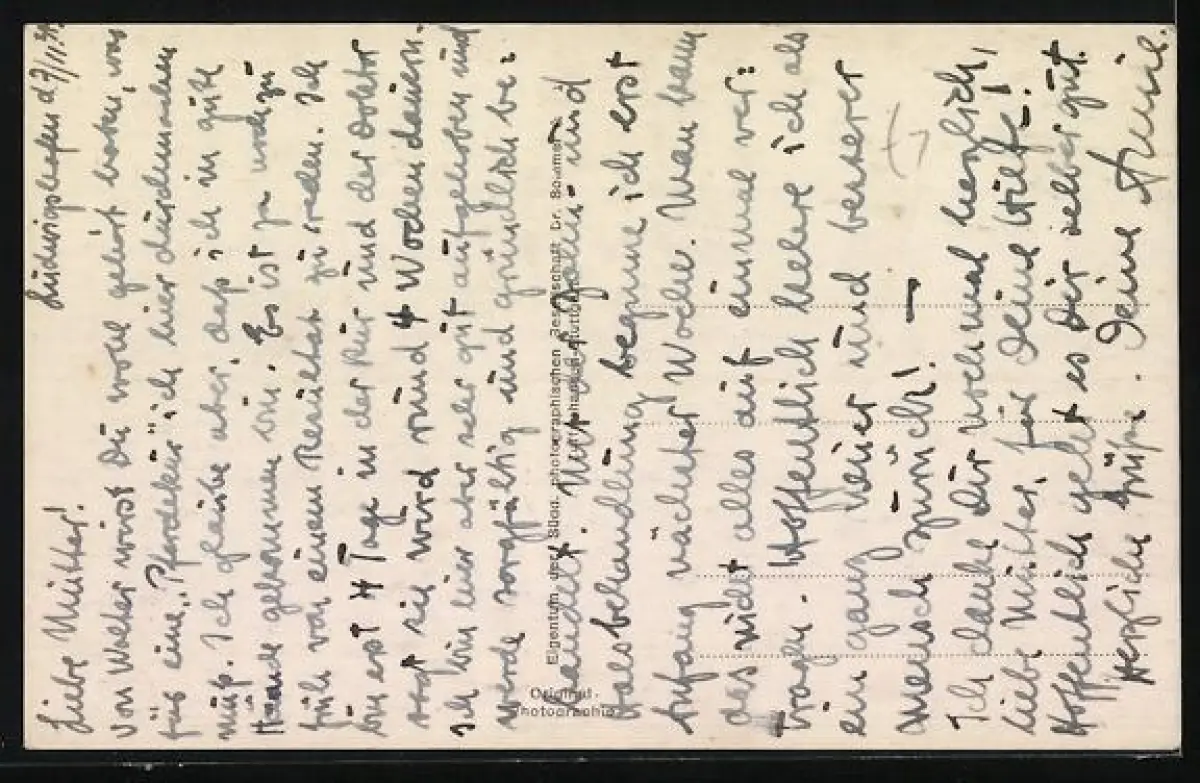 Ludwigshafen d. 7/11.
Liebe Mutter!
Von Walter wirst Du wohl gehört haben, was
für eine „Pferdekur" ich hier durchmachen
muß. Ich glaube aber, daß ich in gute
Hände gekommen bin. Es ist ja noch zu
früh von einem Resultat zu reden. Ich
bin erst 4 Tage in der Kur und der Doktor
sagt sie wird rund 4 Wochen dauern.
Ich bin hier aber sehr gut aufgehoben und
werde sorgfältig und gründlich be=
handelt. und
Halsbehandlung beginne ich erst
Anfang nächster Woche. Man kann
das nicht alles auf einmal ver=
tragen. Hoffentlich kehre ich als
ein ganz neuer und besserer
Mensch zurück! —
Ich danke Dir nochmal herzlich,
liebe Mutter, für Deine Hilfe!
Hoffentlich geht es Dir selber gut.
Herzliche Grüße. Deine
Eigentum der Südd. Photographischen Gesellschaft Dr. Sommer
Original-
Photographie